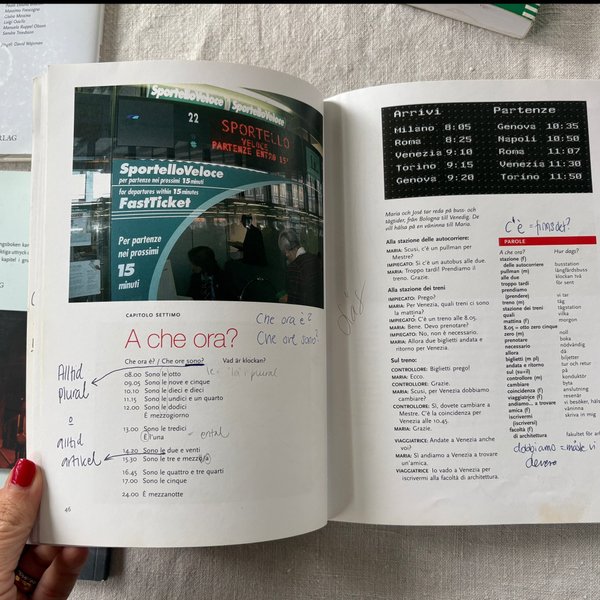 Massimo Fracogna
Claire Messina
Luigi Ozello
Manuela Kuppel Olsson
Sandra Torudsson
Projekt: David Wajnman
LAG
SportelloVeloce SportelloVeloce
22
SPORTELLO
VELOCE
PARTENZE ENTRO 15'
SportelloVeloce
per partenze nei prossimi 15 minuti
for departures within 15 minutes
FastTicket
Per partenze
nei prossimi
15
minuti
CAPITOLO SETTIMO
A che ora?
Che ora è?
Che ore sono?
Che ora è? / Che ore sono? Vad är klockan?
08.00 Sono le otto
09.05 Sono le nove e cinque
10.10 Sono le dieci e dieci
11.15 Sono le undici e un quarto
12.00 Sono le dodici
È mezzogiorno
13.00 Sono le tredici
È l'una
14.20 Sono le due e venti
15.30 Sono le tre e mezzo/a
16.45 Sono le quattro e tre quarti
17.00 Sono le cinque
24.00 È mezzanotte
Alltid
plural
o
alltid
artikel
46
Arrivi Partenze
Milano 8:05 Genova 10:35
Roma 8:25 Napoli 10:50
Venezia 9:10 Roma 11:07
Torino 9:15 Venezia 11:30
Genova 9:20 Torino 11:50
Maria och José tar reda på buss- och
tågtider, från Bologna till Venedig. De
vill hälsa på en väninna till Maria.
Alla stazione delle autocorriere:
MARIA: Scusi, c'è un pullman per
Mestre?
IMPIEGATO: Sì c'è un autobus alle due.
MARIA: Troppo tardi! Prendiamo il
treno. Grazie.
Alla stazione dei treni
IMPIEGATO: Prego?
MARIA: Per Venezia, quali treni ci sono
la mattina?
IMPIEGATO: C'è un treno alle 8.05.
MARIA: Bene. Devo prenotare?
IMPIEGATO: No, non è necessario.
MARIA: Allora due biglietti andata e
ritorno per Venezia.
Sul treno:
CONTROLLORE: Biglietti prego!
MARIA: Ecco.
CONTROLLORE: Grazie.
MARIA: Scusi, per Venezia dobbiamo
cambiare?
CONTROLLORE: Sì, dovete cambiare a
Mestre. C'è la coincidenza per
Venezia alle 10.45.
MARIA: Grazie.
VIAGGIATRICE: Andate a Venezia anche
voi?
MARIA: Sì andiamo a Venezia a trovare
un'amica.
VIAGGIATRICE: Io vado a Venezia per
iscrivermi alla facoltà di architettura.
c'è = finns det?
PAROLE
A che ora? Hur dags?
stazione (f)
delle autocorriere busstation
pullman (m) långfärdsbuss
alle due klockan två
troppo tardi för sent
prendiamo
(prendere) vi tar
treno (m) tåg
stazione dei treni tågstation
quali vilka
mattina (f) morgon
8.05 = otto zero cinque
zero (m) noll
prenotare boka
necessario nödvändig
allora då
biglietti (m pl) biljetter
andata e ritorno tur och retur
sul på
controllore (m) konduktör
cambiare byta
coincidenza (f) anslutning
viaggiatrice (f) resenär
andiamo... a trovare vi besöker, hälsa
amica (f) väninna
iscrivermi skriva in mig
(iscriversi)
facoltà (f)
di architettura fakultet för ar
dobbiamo = måste vi
devere